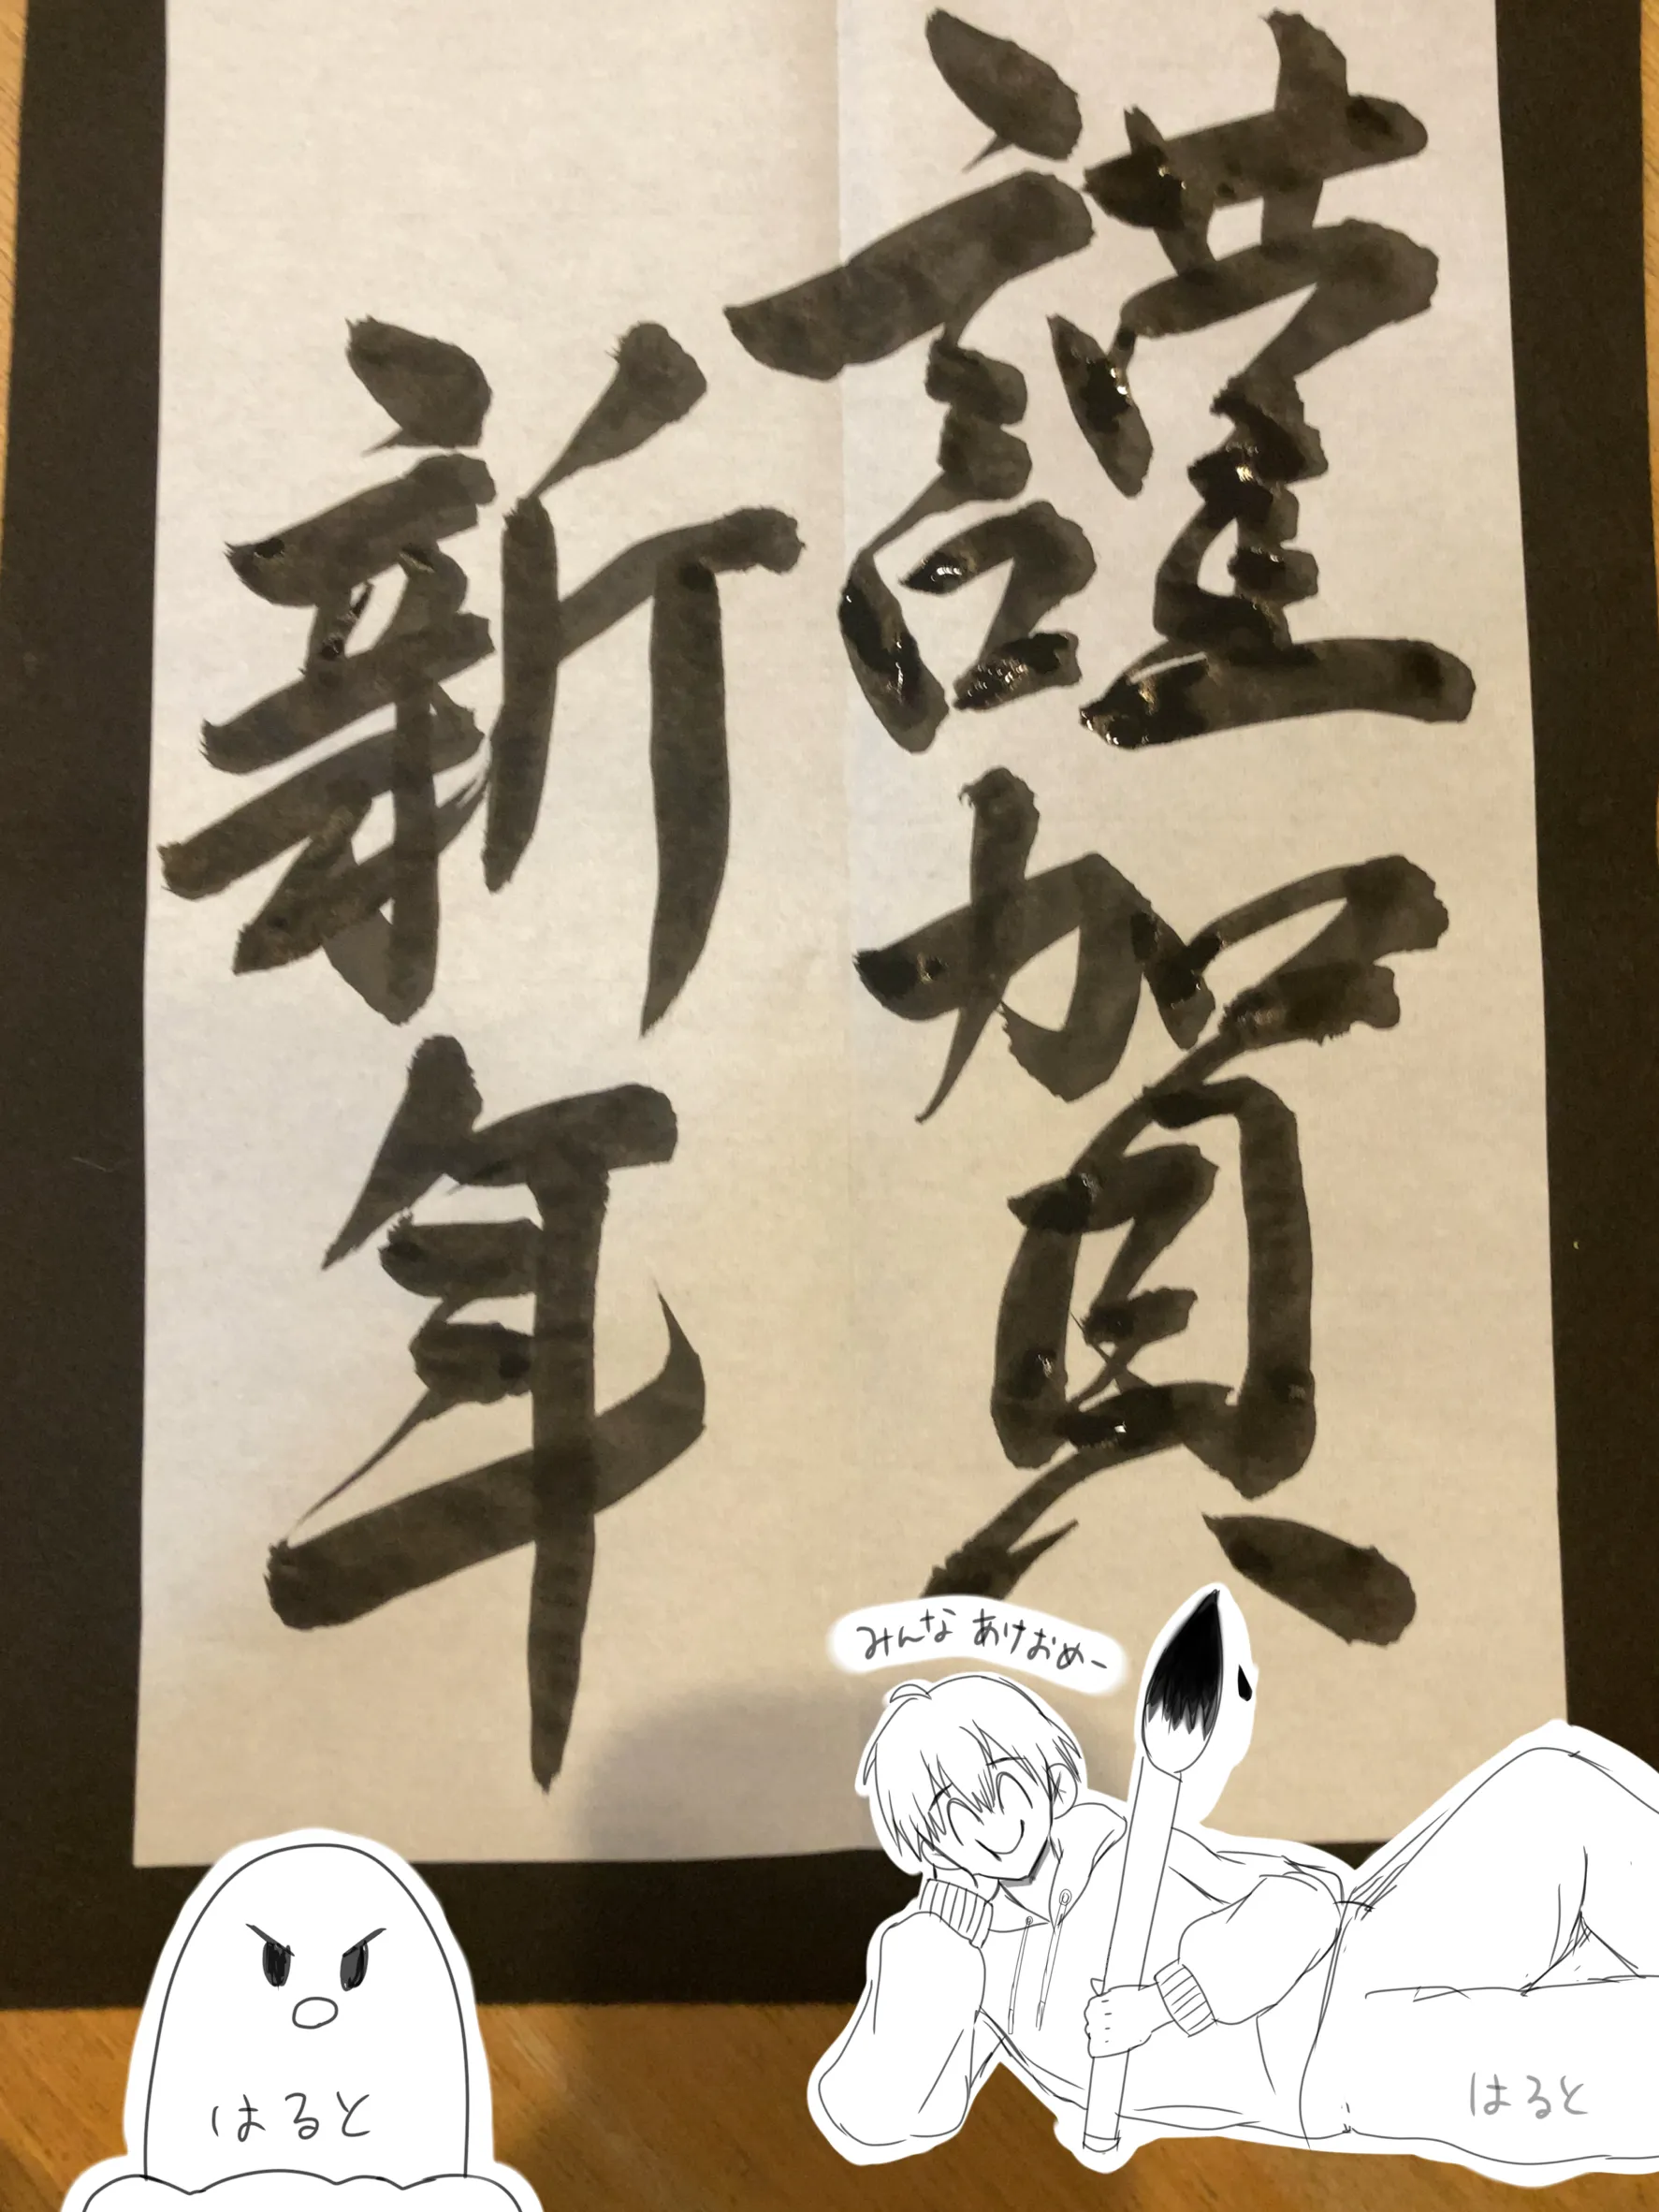 謹賀
新年
みんな あけおめー
はると
はると